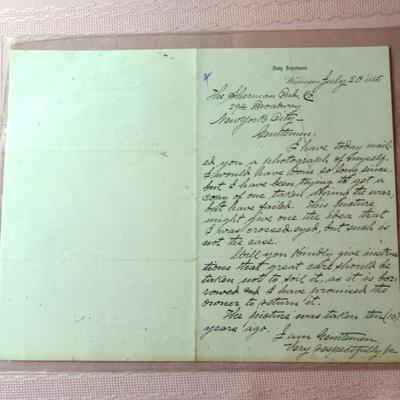 Navy Department
Washington July 28 1885
The Sherman Pub. Co
294 Broadway
New York City—
Gentlemen:
I have today mail
ed you a photograph of myself.
I would have done so long since,
but I have been trying to get a
copy of one taken during the war,
but have failed. This picture
might give one the idea that
I was crossed eyed, but such is
not the case.
Will you kindly give instruc
tions that great care should be
taken not to soil it, as it is bor
rowed and I have promised the
owner to return it.
The picture was taken ten (10)
years ago.
I am Gentlemen
Very respectfully,